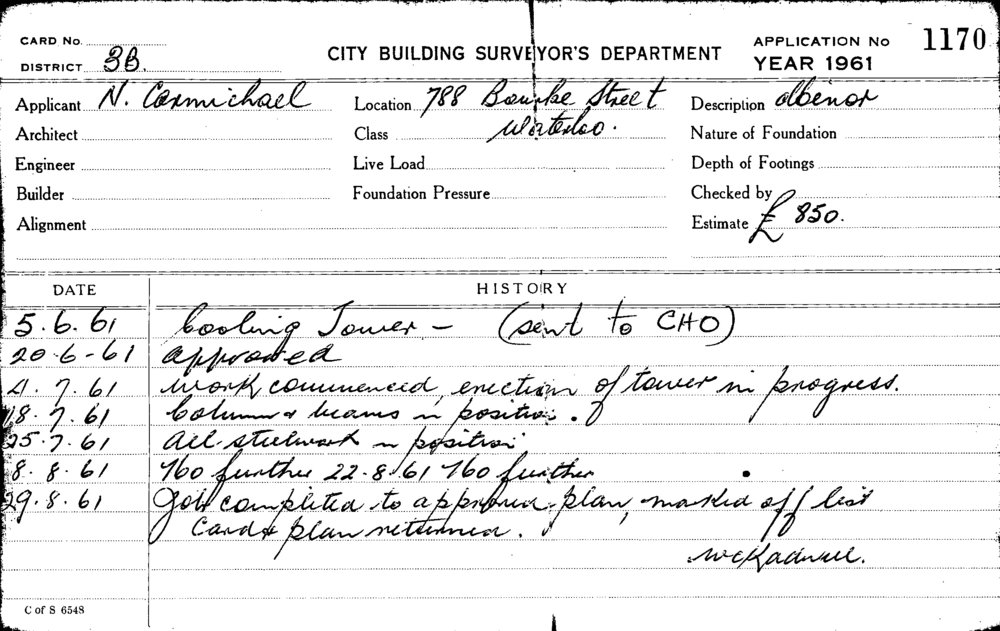 CARD No.
DISTRICT 3B.
CITY BUILDING SURVEYOR'S DEPARTMENT
APPLICATION No 1170
YEAR 1961
Applicant N. Carmichael
Location 788 Bourke Street
Waterloo.
Description
Architect
Class
Nature of Foundation
Engineer
Live Load
Depth of Footings
Builder
Foundation Pressure
Checked by
Alignment
Estimate £ 850.
DATE HISTORY
5.6.61 Cooling Tower - (sent to CHO)
20-6-61 approved
4.7.61 work commenced, erection of tower in progress.
18.7.61 Columns & beams in position.
25.7.61 All steelwork in position
8.8.61 No further 22.8.61 No further
29.8.61 Job completed to approved plan, marked off list
Card & plan returned.
C of S 6548